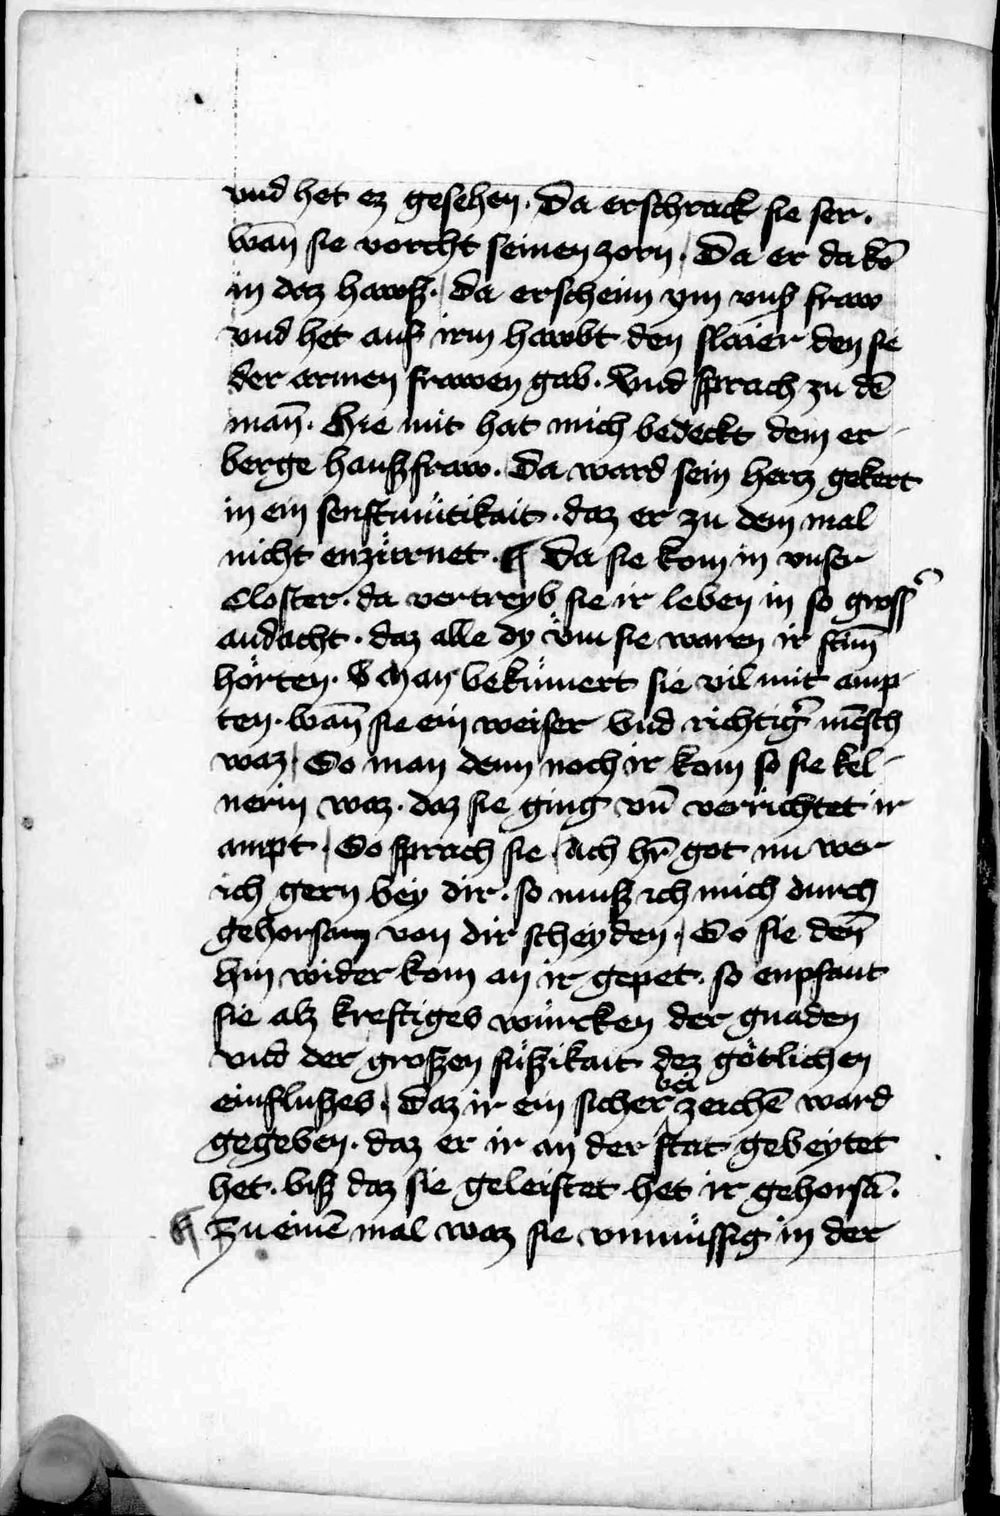 vnd het ez gesehen. Da erschrack sie ser.
wañ sie vorcht seinen zorn, Da er da kō
in dez hawß. Da erschein ym vnß fraw
vnd het auf irm hawbt den slaier den sie
der armen frawen gab. Vnd sprach zu dē
mañ. Hie mit hat mich bedeckt dein er-
berge haußfraw. Da ward sein hercz gekert
in ein senftmütikait. daz er zu dem mal
nicht enzürnet. ¶ Da sie kom in vnser
closter. da vertreyb sie ir leben in so gross̉
andacht. daz alle dy üm sie waren ir stim̄
hörten. Man bekümert sie vil mit amp-
ten. wañ sie ein weiser vnd richtig̉ mēsch
waz, So man denn noch ir kom so sie kel-
nerin waz. daz sie ging vn̄ verrichtet ir
ampt, So sprach sie, Ach hr̄ got nu wer
ich gern bey dir. so muß ich mich durch
gehorsam von dir scheyden, So sie den̄
hin wider kom an ir gepet. so enpfant
sie alz kreftiges würcken der gnaden
vnd der großen süßikait dez götlichen
einflußes, Daz ir ein sicher bei zeichē ward
gegeben. daz er ir an der stat gebeytet
het. biß daz sie geleistet het ir gehorsā.
¶ Zu einē mal waz sie vnmüssig in der